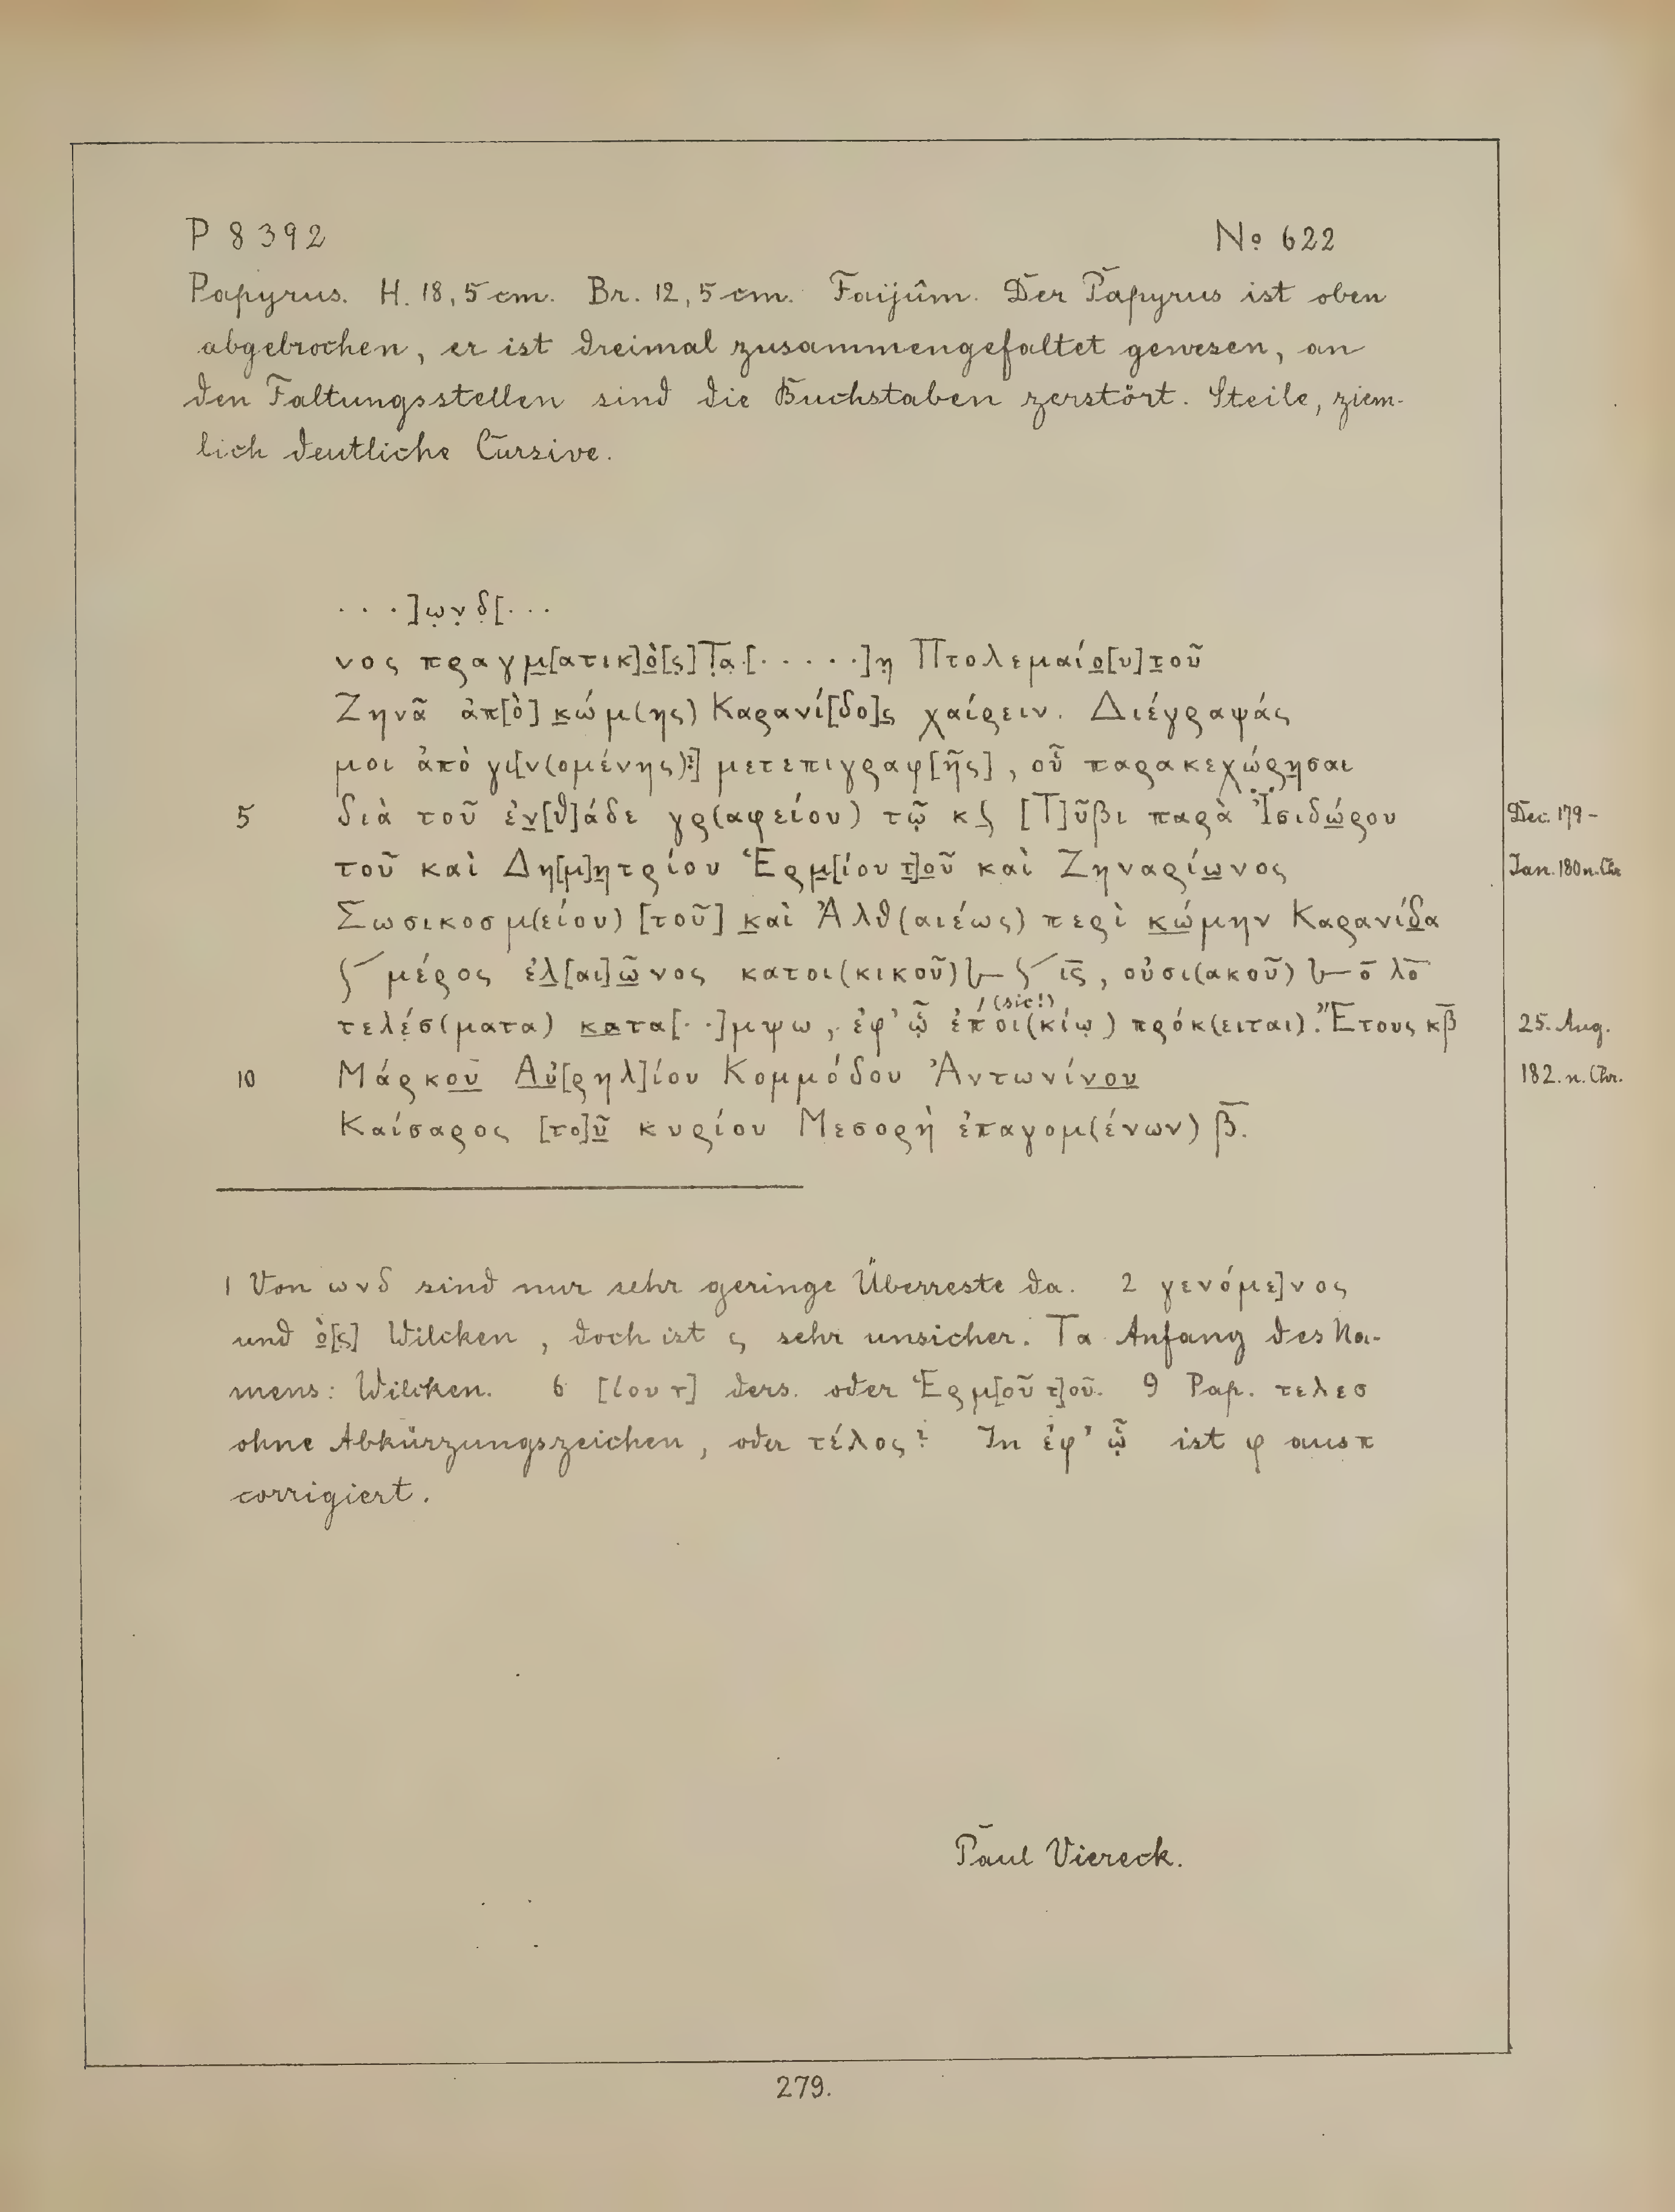 P 8392 No 622
Papyrus. H. 18,5 cm. Br. 12,5 cm. Faijûm. Der Papyrus ist oben
abgebrochen, er ist dreimal zusammengefaltet gewesen, an
den Faltungsstellen sind die Buchstaben zerstört. Steile, ziem-
lich deutliche Cursive.
. . .]ω̣ν̣δ̣[. . .
νος πραγμ̲[ατικ]ὸ̲[ς̣] Τ̣α̣.[. . . . .]η̣ Πτολεμαίο̲[υ] τ̲οῦ
Ζηνᾶ ἀπ[ὸ] κ̲ώμ(ης) Καρανί[δο]ς̲ χαίρειν. Διέγραψάς
μοι ἀπὸ γι[ν(ομένης)?] μετεπιγραφ[ῆς], οὗ παρακεχώρη̲σαι
5 διὰ τοῦ ἐν̲[θ]άδε γρ(αφείου) τῷ κϛ̲ [Τ]ῦβι παρὰ Ἰ̈σιδώ̲ρου Dec. 179-
τοῦ καὶ Δη[μ]η̲τρίου Ἑρμ̲[ίου τ̲]ο̲ῦ καὶ Ζηναρίω̲νος Jan. 180 n. Chr
Σωσικοσμ(είου) [τοῦ] κ̲αὶ Ἀλθ(αιέως) περὶ κ̲ώ̲μην Καρανίδ̲α
ʃ´ μέρος ἐλ̲[αι]ῶ̲νος κατοι(κικοῦ) 𐅵 ʃ´ ις̅, οὐσι(ακοῦ) ο̅ λο̅
τελέσ(ματα) κ̲α̲τα[. .]μψω, ἐφ' ᾧ ἐποι(κίῳ) (sic!) πρόκ(ειται). Ἔτους κβ̅ 25. Aug.
10 Μάρκο̲υ̲ Α̲ὐ̲[ρηλ]ίου Κομμόδου Ἀντωνίν̲ο̲υ̲ 182. n. Chr.
Καίσαρος [το]ῦ̲ κυρίου Μεσορὴ ἐπαγομ(ένων) β̅.
1 Von ωνδ sind nur sehr geringe Überreste da. 2 γενόμε]νος
und ὸ̲[ς̣] Wilcken, doch ist ς sehr unsicher. Τα Anfang des Na-
mens: Wilcken. 6 [ίου τ] ders. oder Ἑρμ[οῦ τ]οῦ. 9 Pap. τελεσ
ohne Abkürzungszeichen, oder τέλος? In ἐφ' ᾧ ist φ aus π
corrigiert.
Paul Viereck.
279.